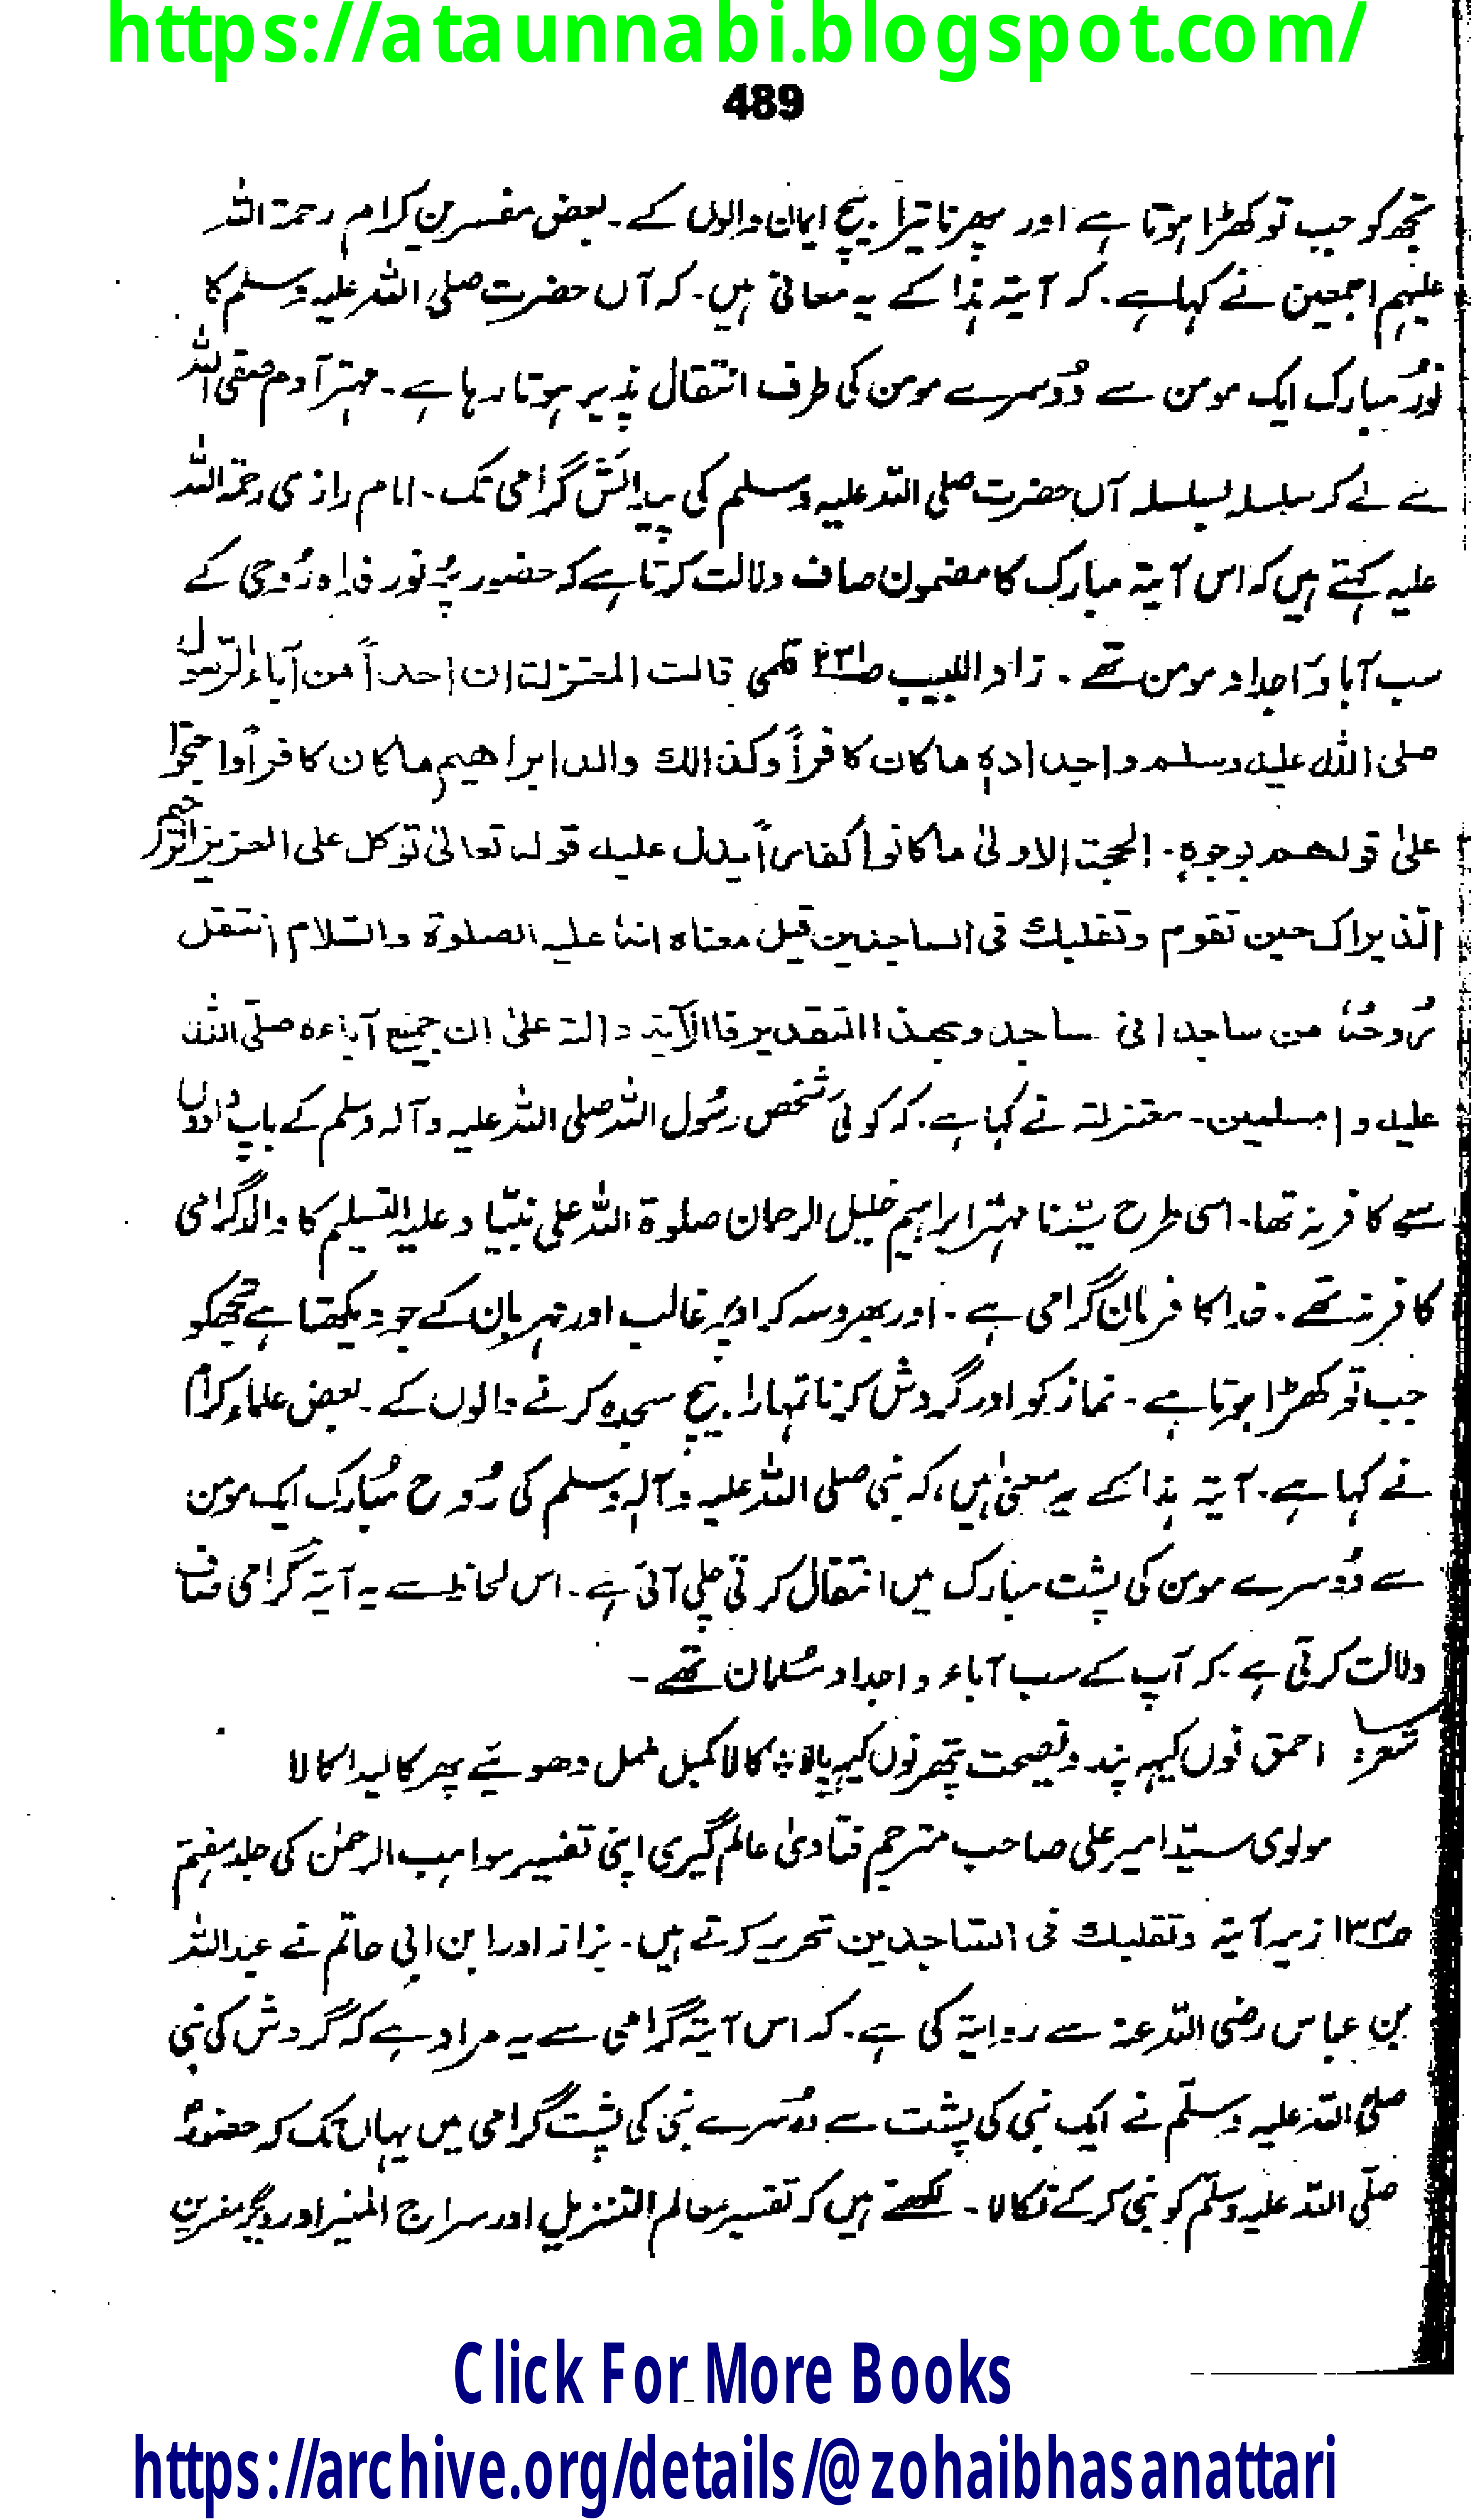 https://ataunnabi.blogspot.com/
489
تجھ کو جب تو کھڑا ہوتا ہے اور پھرنا تیرا بیچ ایمان والوں کے۔ بعض مفسرین کرام رحمۃ اللہ
علیہم اجمعین نے کہا ہے۔ کہ آیتہ ہذا کے یہ معانی ہیں۔ کہ آں حضرت صلی اللہ علیہ وسلم کا
نورُ مبارک ایک مومن سے دُوسرے مومن کی طرف انتقال پذیر ہوتا رہا ہے۔ مہتر آدم صفی اللہ
سے لے کر سلسلہ بسلسلہ آں حضرت صلی اللہ علیہ وسلم کی پیدائش گرامی تک۔ امام رازی رحمۃ اللہ
علیہ کہتے ہیں کہ اس آیتہ مبارک کا مضمون صاف دلالت کرتا ہے کہ حضور پُر نور فداہ رُوحی کے
سب آبا و اَجداد مومن تھے۔ زاد اللبیب صـ۲۳۱ قلمی قالت المعتزلۃ ان احداً من آباء الرّسول
صلی اللہ علیہ وسلم و اجدادہٖ ماکان کافراً وکذالک والد ابراھیم ماکان کافراً واحتجّوا
علیٰ قولھم بوجوہٍ۔ الحجت الاولیٰ ماکانوا کفاراً یدل علیہ قولہ تعالیٰ توکل علی العزیز الرّحیم
الّذی یراک حین تقوم وتقلبک فی الساجدین قیل معناہ انہٗ علیہ الصلوۃ والسّلام انتقل
رُوحُہٗ من ساجد الیٰ ساجد وبھذا التقدیر فاالآیۃ دالۃ علیٰ ان جمیع آباءہ صلّی اللہ
علیہ و مسلمین۔ معتزلہ نے کہا ہے۔ کہ کوئی شخص رسُول اللہ صلی اللہ علیہ وآلہ وسلم کے باپ دادوں
سے کافر نہ تھا۔ اسی طرح سیّدنا مہتر ابراہیم خلیل الرحمان صلوۃ اللہ علی نبیّنا وعلیہ التسلیم کا والد گرامی
کافر نہ تھے۔ خدا کا فرمان گرامی ہے۔ اور بھروسہ کر اوپر غالب اور مہربان کے جو دیکھتا ہے تجھکو
جب تو کھڑا ہوتا ہے۔ نماز کو اور گردش کرنا تمہارا بیچ سجدہ کرنے والوں کے۔ بعض علماءِ کرام
نے کہا ہے۔ آیتہ ہذا کے یہ معنیٰ ہیں، کہ نبی صلی اللہ علیہ وآلہٖ وسلم کی رُوح مُبارک ایک مومن
سے دُوسرے مومن کی پشت مبارک میں انتقال کرتی چلی آئی ہے۔ اس لحاظ سے یہ آیتہ گرامی صاف
دلالت کرتی ہے۔ کہ آپ کے سب آباء و اجداد مسُلمان تھے۔
شعر: احمق نوں کیہہ پند ونصیحت پتھر نوں کیہہ پالا ؞ کالا کمبل مَل مَل دھوئیے پھر کالیدا کالا
مولوی سیّد امیر علی صاحب مترجم فتاویٰ عالمگیری اپنی تفسیر مواہب الرحمٰن کی جلد ہفتم
صـ۱۳۳ زیر آیتہ وتقلبک فی السّاجدین تحریر کرتے ہیں۔ بزاز اور ابن ابی حاتم نے عبداللہ
بن عباس رضی اللہ عنہ سے روایۃ کی ہے۔ کہ اس آیتہ گرامی سے یہ مراد ہے کہ گردش کی نبی
صلّی اللہ علیہ وسلّم نے ایک نبی کی پشت سے دوسُرے نبی کی پشت گرامی میں یہاں تک کہ حضور
صلّی اللہ علیہ وسلّم کو نبی کرکے نکالا۔ لکھتے ہیں کہ تفسیر معالم التنزیل اور سراج المنیر اور دیگر مفسرین
Click For More Books
https://archive.org/details/@zohaibhasanattari